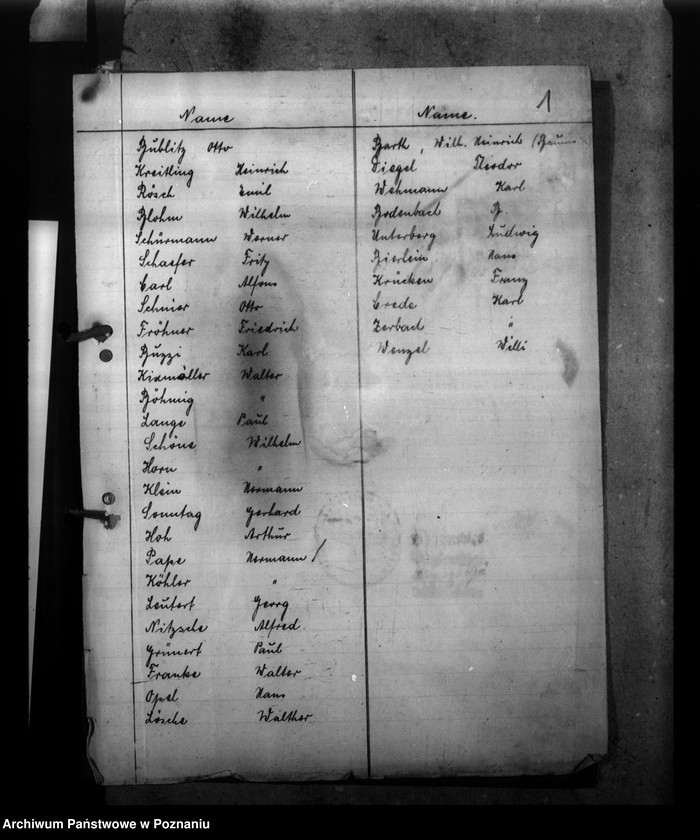 1
Name
Bublitz Otto
Kreitling Heinrich
Rösch Emil
Blohm Wilhelm
Schürmann Werner
Schaefer Fritz
Carl Alfons
Schnier Otto
Fröhner Friedrich
Buzzi Karl
Kixmöller Walter
Böhmig "
Lange Paul
Schöne Wilhelm
Horn "
Klein Hermann
Sonntag Gerhard
Hoh Arthur
Pape Hermann /
Köhler "
Leutert Georg
Nitzsche Alfred
Grünert Paul
Franke Walter
Opel Hans
Lösche Walther
Name.
Barth, Wilh. Heinrich
Tiegel Theodor
Wehmann Karl
Bodenbach B.
Unterberg Ludwig
Bierlein Hans
Krücken Franz
Crede Karl
Zerbach "
Wenzel Willi
Archiwum Państwowe w Poznaniu